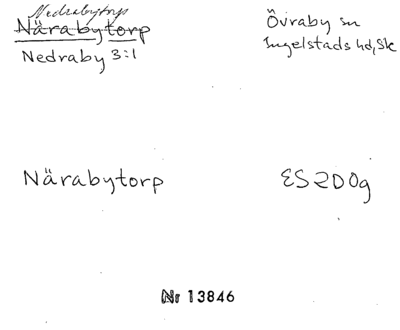 Nedrabytorp
Närabytorp
Nedraby 3:1
Övraby sn
Ingelstads hd, Sk
Närabytorp
ES2D0g
Nr 13846